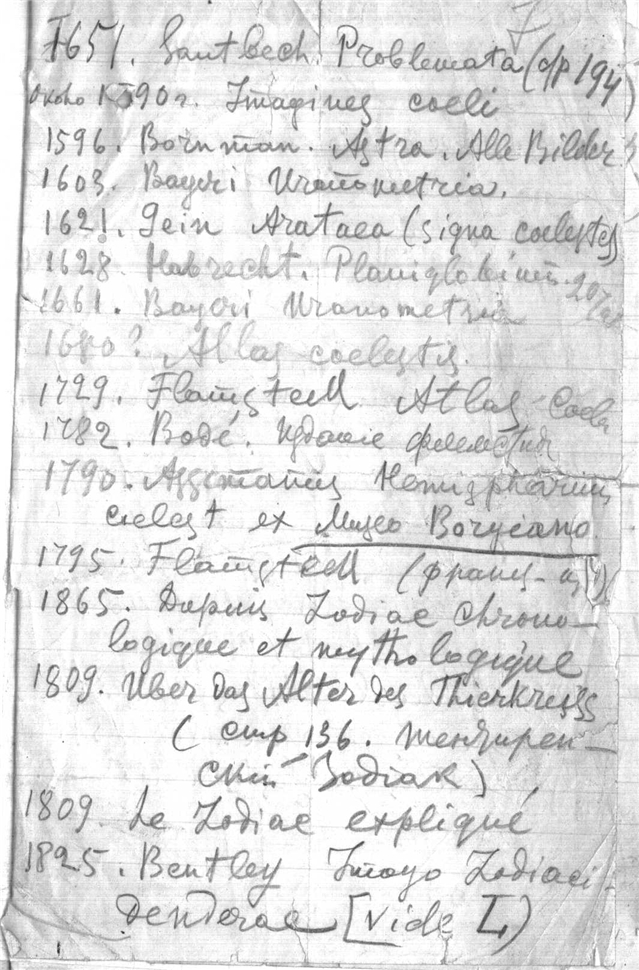 7
1651. Santbech. Problemata (стр 194)
около 1590 г. Imagines coeli
1596. Bornman. Astra. Alle Bilder
1603. Bayeri Uranometria.
1621. Gein Arataea (signa coelestes)
1628 Habrecht. Planiglobium
1661. Bayeri Uranometria
1680? Atlas coelestis.
1729. Flamsteed Atlas Coele
1782. Bodé. Издание
1790. Assemanus Hemisphaerium
coelest ex Museo Borgiano
1795. Flamsteed (франц-
1865. Dupuis Zodiac chrono-
logique et mythologique
1809. Uber das Alter des Thierkreises
(стр 136. тентирен-
ский Зодиак)
1809. Le Zodiac expliqué
1825. Bentley Imago Zodiaci
Denderae [Vide I,)